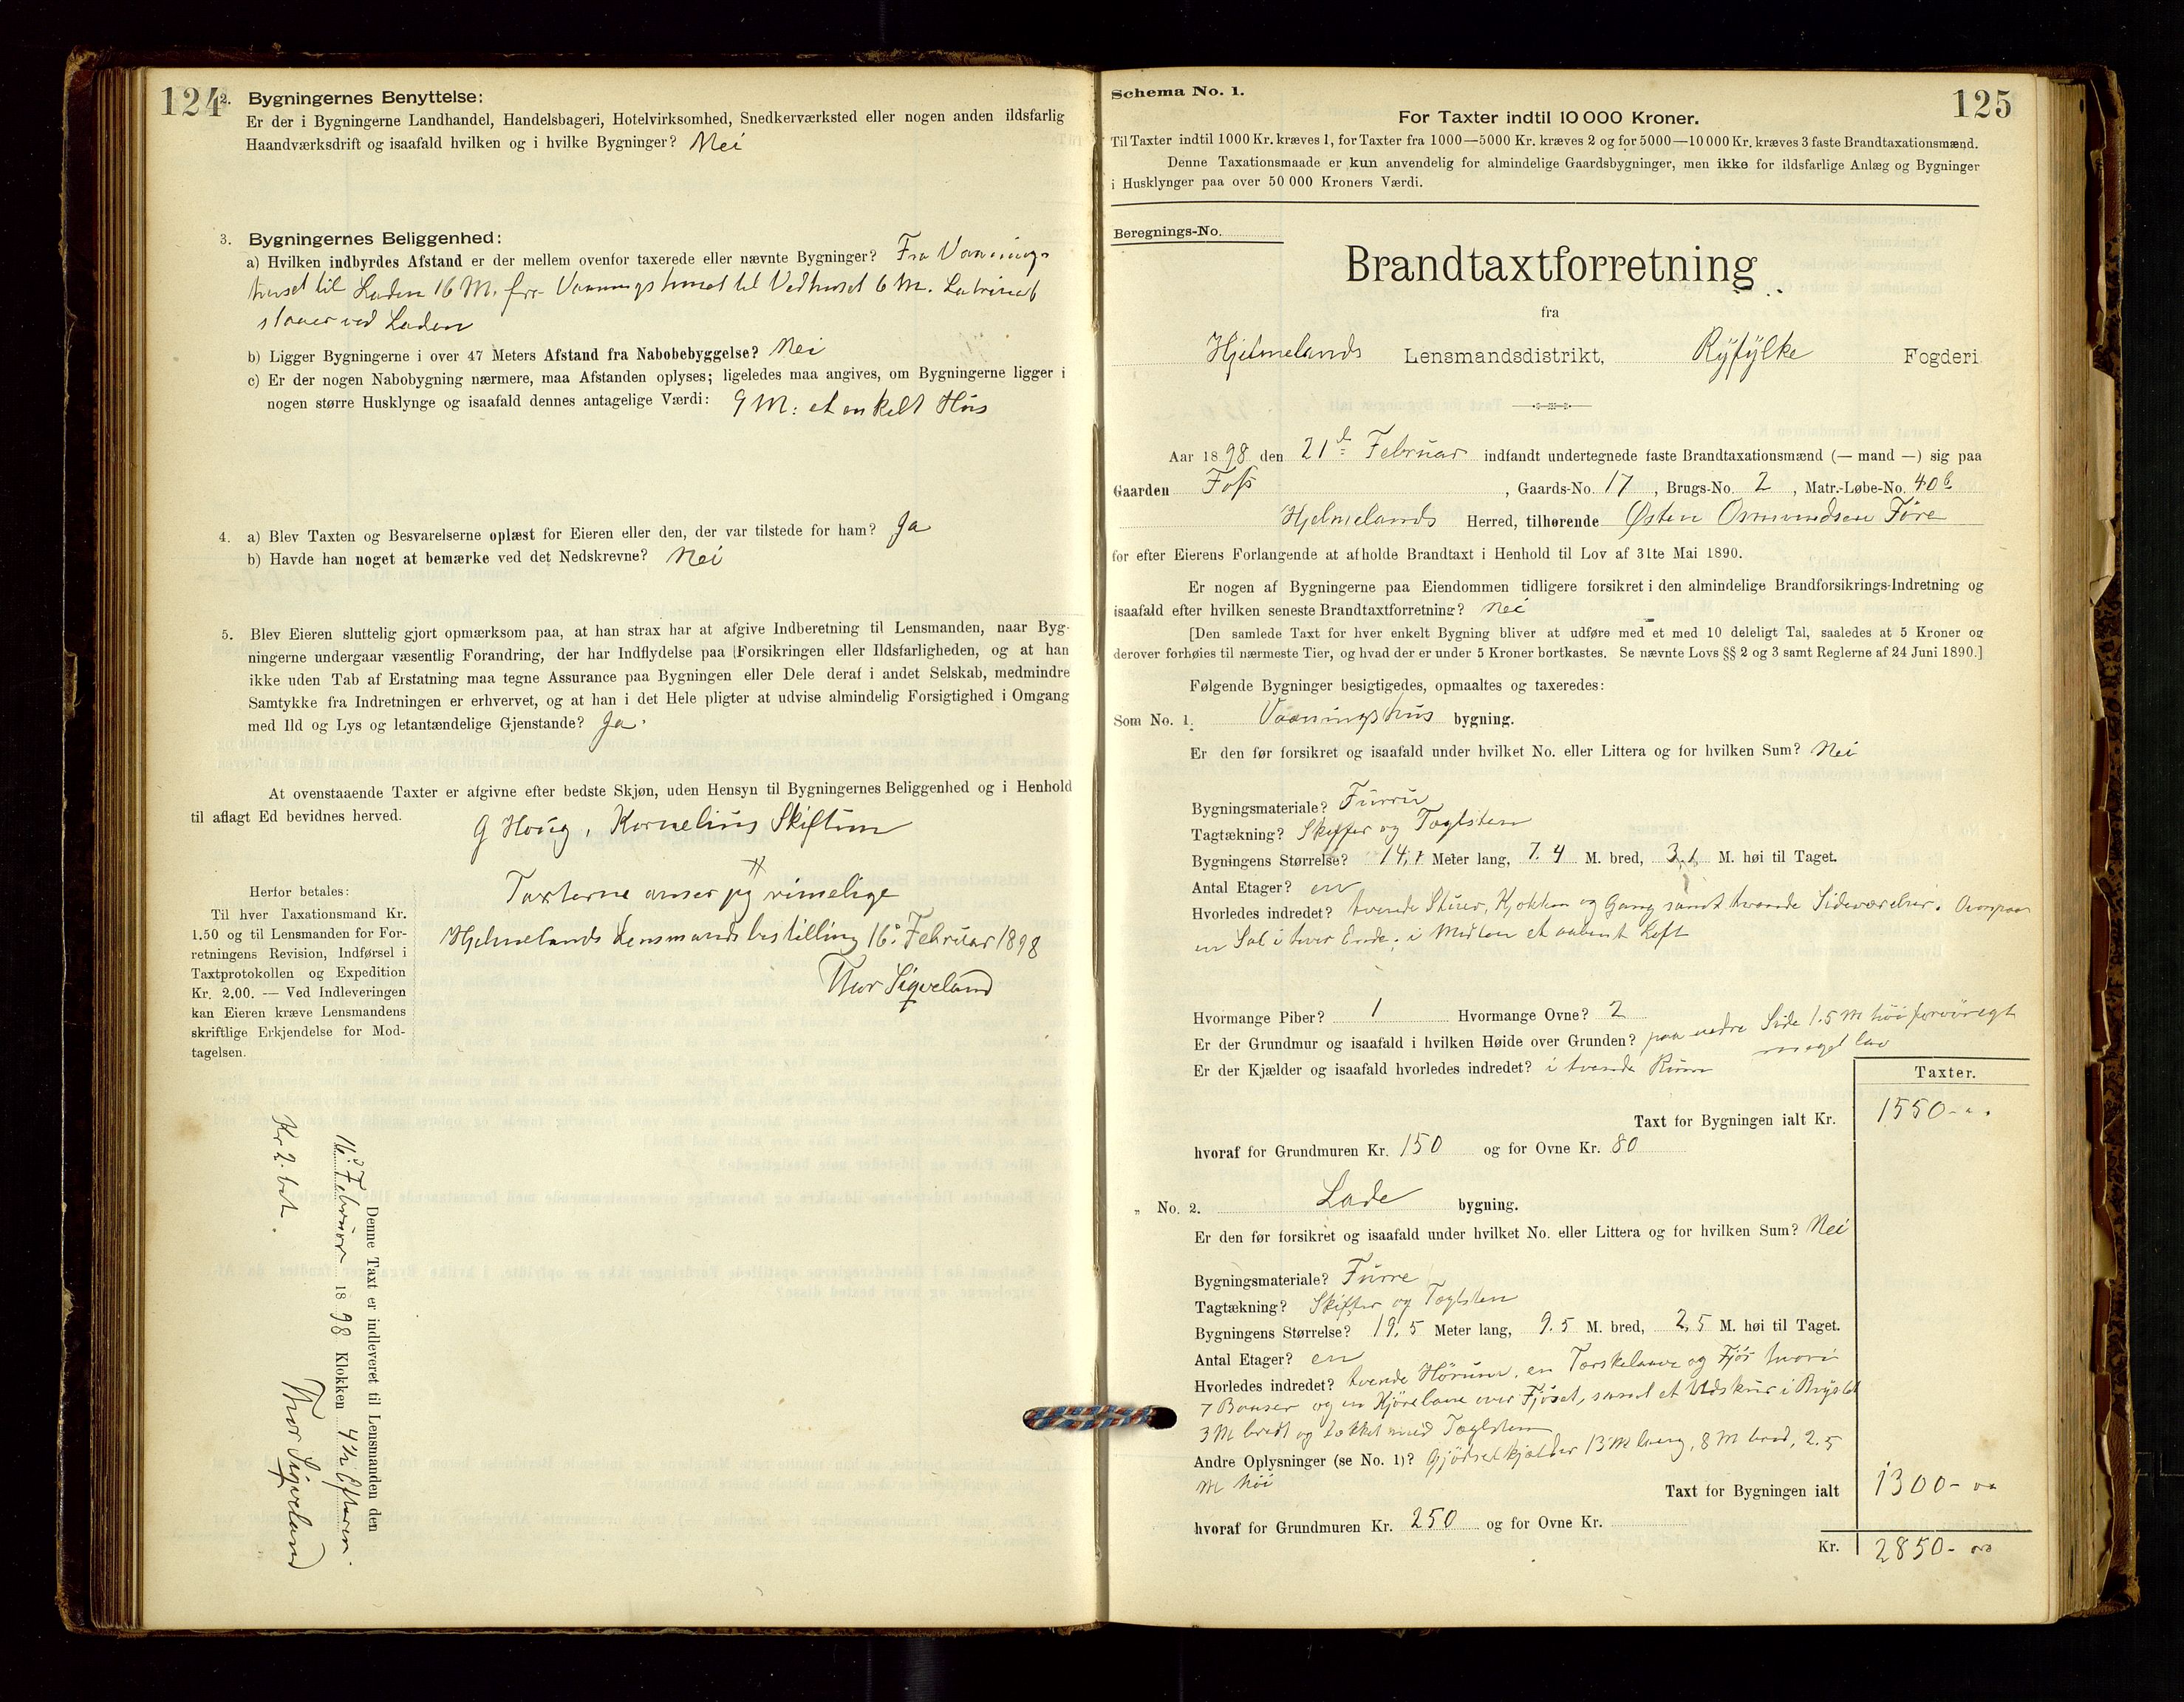 124
2. Bygningernes Benyttelse:
Er der i Bygningerne Landhandel, Handelsbageri, Hotelvirksomhed, Snedkerværksted eller nogen anden ildsfarlig
Haandværksdrift og isaafald hvilken og i hvilke Bygninger? Nei
3. Bygningernes Beliggenhed:
a) Hvilken indbyrdes Afstand er der mellem ovenfor taxerede eller nævnte Bygninger? Fra Vaanings
huset til Laden 16 M. fra Vaaningshuset til Vedhuset 6 M. Latrinet
staaer ved Laden
b) Ligger Bygningerne i over 47 Meters Afstand fra Nabobebyggelse? Nei
c) Er der nogen Nabobygning nærmere, maa Afstanden oplyses; ligeledes maa angives, om Bygningerne ligger i
nogen større Husklynge og isaafald dennes antagelige Værdi: 9 M: et enkelt Hus
4. a) Blev Taxten og Besvarelserne oplæst for Eieren eller den, der var tilstede for ham? Ja
b) Havde han noget at bemærke ved det Nedskrevne? Nei
5. Blev Eieren sluttelig gjort opmærksom paa, at han strax har at afgive Indberetning til Lensmanden, naar Byg-
ningerne undergaar væsentlig Forandring, der har Indflydelse paa Forsikringen eller Ildsfarligheden, og at han
ikke uden Tab af Erstatning maa tegne Assurance paa Bygningen eller Dele deraf i andet Selskab, medmindre
Samtykke fra Indretningen er erhvervet, og at han i det Hele pligter at udvise almindelig Forsigtighed i Omgang
med Ild og Lys og letantændelige Gjenstande? Ja.
At ovenstaaende Taxter er afgivne efter bedste Skjøn, uden Hensyn til Bygningernes Beliggenhed og i Henhold
til aflagt Ed bevidnes herved.
G Houg, Kornelius Skiftun
Taxterne anser jeg rimelige
Hjelmelands Lensmandsbestilling 16. Februar 1898
Thor Sigveland
Herfor betales:
Til hver Taxationsmand Kr.
1.50 og til Lensmanden for For-
retningens Revision, Indførsel i
Taxtprotokollen og Expedition
Kr. 2.00. — Ved Indleveringen
kan Eieren kræve Lensmandens
skriftlige Erkjendelse for Mod-
tagelsen.
Denne Taxt er indleveret til Lensmanden den
16. Februar 1898 Klokken 4½ Efterm.
Thor Sigveland
Kr 2. bet.
125
Schema No. 1.
For Taxter indtil 10 000 Kroner.
Til Taxter indtil 1000 Kr. kræves 1, for Taxter fra 1000—5000 Kr. kræves 2 og for 5000—10 000 Kr. kræves 3 faste Brandtaxationsmænd.
Denne Taxationsmaade er kun anvendelig for almindelige Gaardsbygninger, men ikke for ildsfarlige Anlæg og Bygninger
i Husklynger paa over 50 000 Kroners Værdi.
Beregnings-No.
Brandtaxtforretning
fra
Hjelmelands Lensmandsdistrikt, Ryfylke Fogderi
Aar 1898 den 21de Februar indfandt undertegnede faste Brandtaxationsmænd (— mand —) sig paa
Gaarden Foss, Gaards-No. 17, Brugs-No. 2, Matr.-Løbe-No. 40b
Hjelmelands Herred, tilhørende Østen Osmundsen Føre
for efter Eierens Forlangende at afholde Brandtaxt i Henhold til Lov af 31te Mai 1890.
Er nogen af Bygningerne paa Eiendommen tidligere forsikret i den almindelige Brandforsikrings-Indretning og
isaafald efter hvilken seneste Brandtaxtforretning? Nei
[Den samlede Taxt for hver enkelt Bygning bliver at udføre med et med 10 deleligt Tal, saaledes at 5 Kroner og
derover forhøies til nærmeste Tier, og hvad der er under 5 Kroner bortkastes. Se nævnte Lovs §§ 2 og 3 samt Reglerne af 24 Juni 1890.]
Følgende Bygninger besigtigedes, opmaaltes og taxeredes:
Som No. 1. Vaaningshus bygning.
Er den før forsikret og isaafald under hvilket No. eller Littera og for hvilken Sum? Nei
Bygningsmateriale? Furru
Tagtækning? Skiffer og Taglsten
Bygningens Størrelse? 14,1 Meter lang, 7.4 M. bred, 3,1 M. høi til Taget.
Antal Etager? en
Hvorledes indredet? tvende Stuer, Kjøkken og Gang samt tvende Sideværelser. Ovenpaa
en Sal i hver Ende; i Midten et aabent Loft
Hvormange Piber? 1 Hvormange Ovne? 2
Er der Grundmur og isaafald i hvilken Høide over Grunden? paa nedre Side 1.5 M høi forøvrigt
meget lav
Er der Kjælder og isaafald hvorledes indredet? i tvende Rum
Taxter.
Taxt for Bygningen ialt Kr. 1550-
hvoraf for Grundmuren Kr. 150 og for Ovne Kr. 80
„ No. 2. Lade bygning.
Er den før forsikret og isaafald under hvilket No. eller Littera og for hvilken Sum? Nei
Bygningsmateriale? Furre
Tagtækning? Skiffer og Taglsten
Bygningens Størrelse? 19.5 Meter lang, 9.5 M. bred, 2,5 M. høi til Taget.
Antal Etager? en
Hvorledes indredet? tvende Hørum, en Tørskelaave og Fjøs hvori
7 Baaser og en Kjørelaave over Fjøset, samt et Udskur i
3 M bredt og tækket med Taglsten
Andre Oplysninger (se No. 1)? Gjødselkjælder 13 M lang, 8 M bred, 2.5
M høi
Taxt for Bygningen ialt 1300-
hvoraf for Grundmuren Kr. 250 og for Ovne Kr.
Kr. 2850-